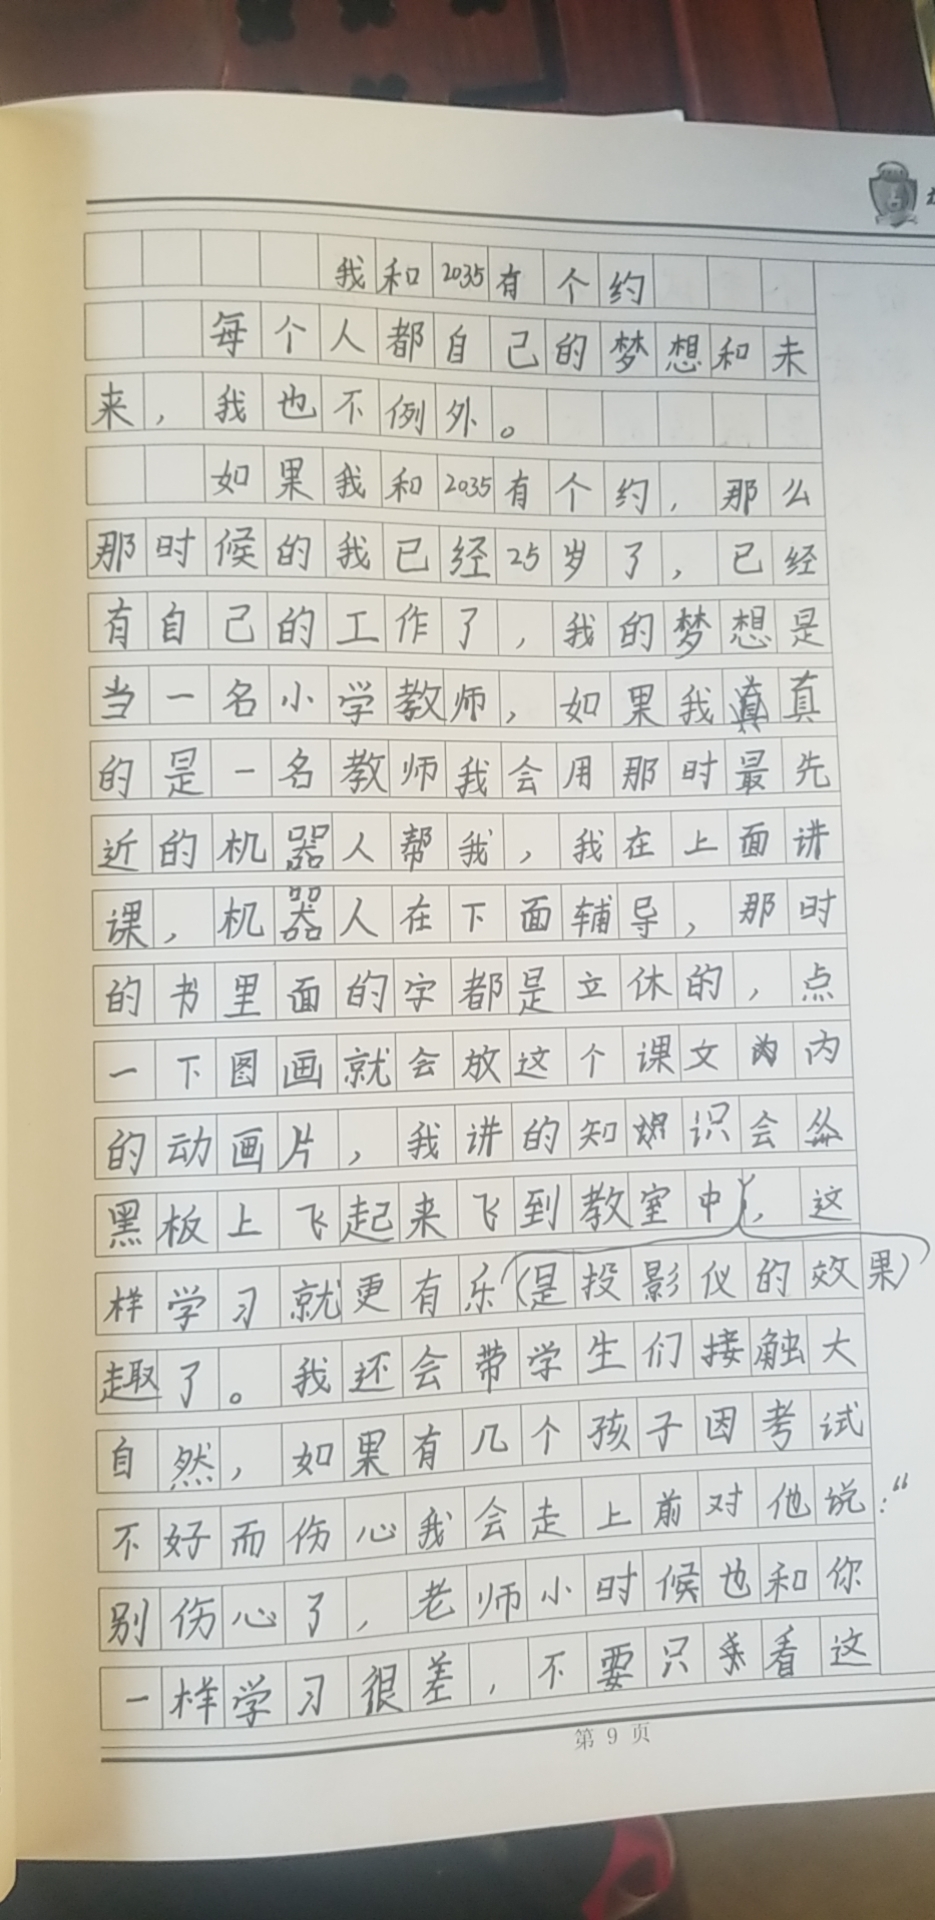 我和2035有个约
每个人都自己的梦想和未
来，我也不例外。
如果我和2035有个约，那么
那时候的我已经25岁了，已经
有自己的工作了，我的梦想是
当一名小学教师，如果我真
的是一名教师我会用那时最先
近的机器人帮我，我在上面讲
课，机器人在下面辅导，那时
的书里面的字都是立休的，点
一下图画就会放这个课文内
的动画片，我讲的知识会从
黑板上飞起来飞到教室中，这
样学习就更有乐(是投影仪的效果)
趣了。我还会带学生们接触大
自然，如果有几个孩子因考试
不好而伤心我会走上前对他说：“
别伤心了，老师小时候也和你
一样学习很差，不要只看这
第9页